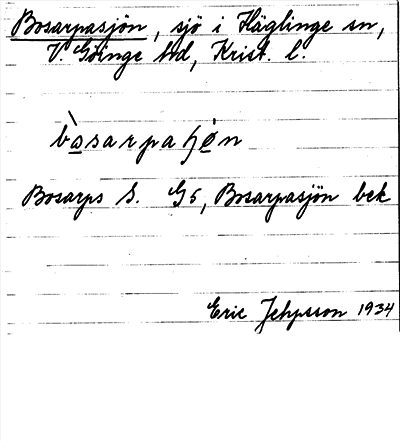 Bosarpasjön, sjö i Häglinge sn,
V. Göinge hd, Krist. l.
Bosarps S. G5, Bosarpasjön bek
Eric 1934